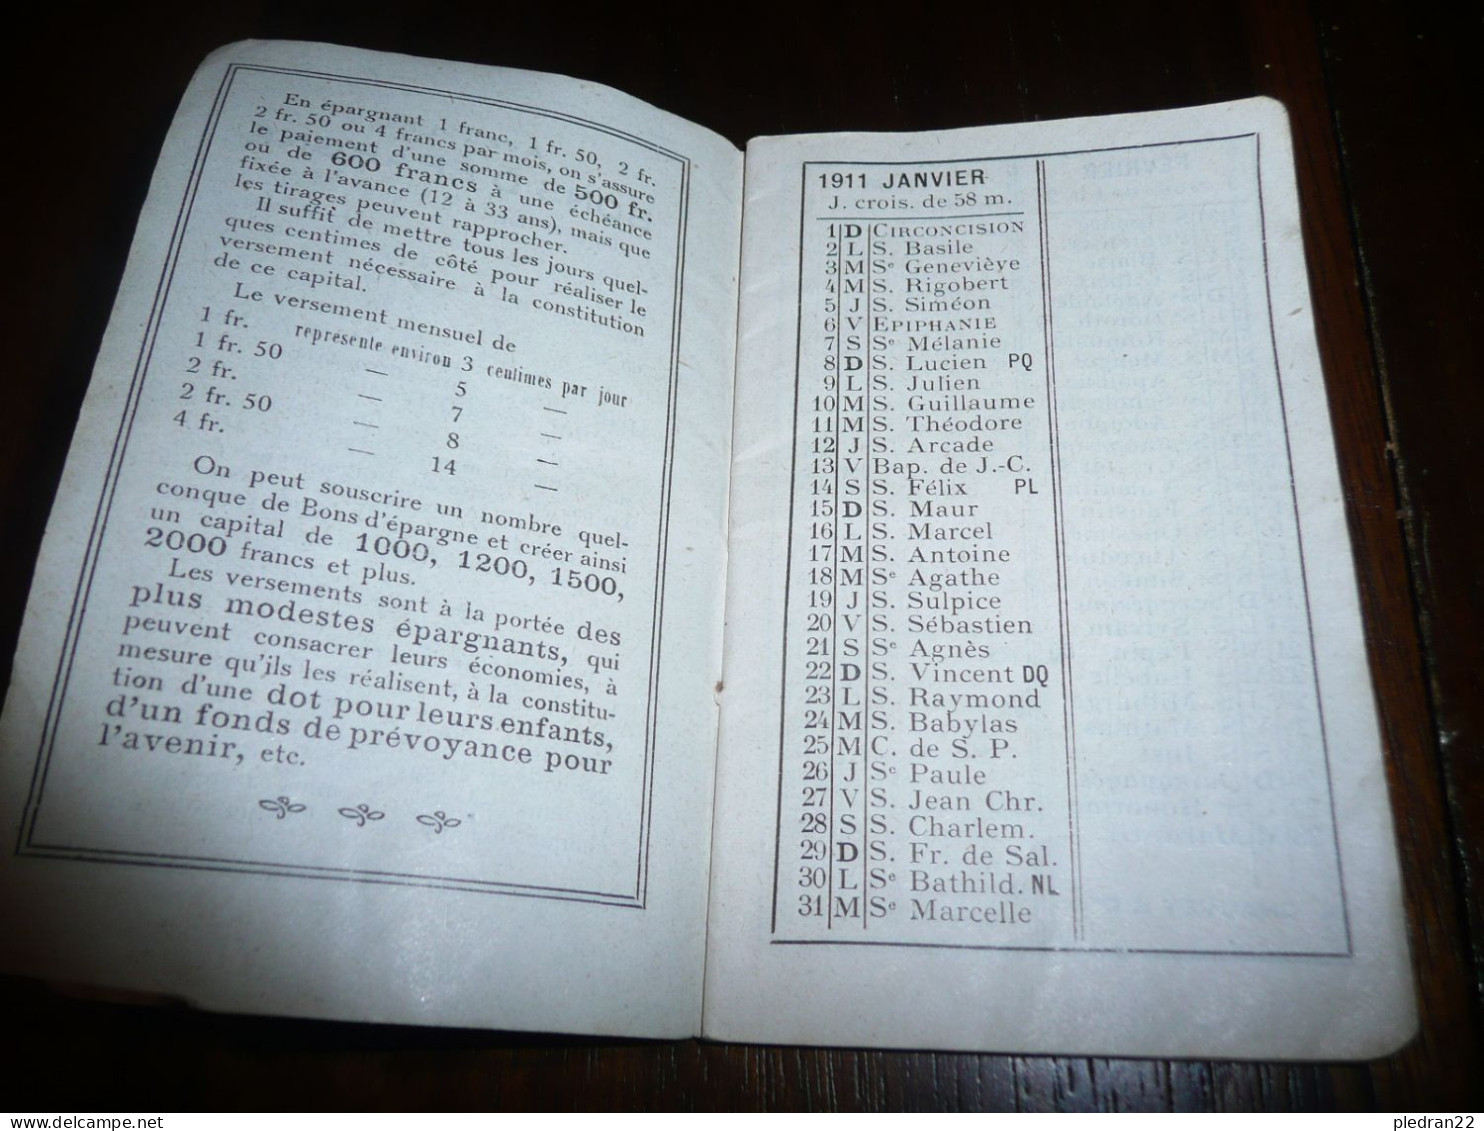 En épargnant 1 franc, 1 fr. 50, 2 fr.
2 fr. 50 ou 4 francs par mois, on s'assure
le paiement d'une somme de 500 fr.
ou de 600 francs à une échéance
fixée à l'avance (12 à 33 ans), mais que
les tirages peuvent rapprocher.
Il suffit de mettre tous les jours quel-
ques centimes de côté pour réaliser le
versement nécessaire à la constitution
de ce capital.
Le versement mensuel de
1 fr. représente environ 3 centimes par jour
1 fr. 50 — 5 —
2 fr. — 7 —
2 fr. 50 — 8 —
4 fr. — 14 —
On peut souscrire un nombre quel-
conque de Bons d'épargne et créer ainsi
un capital de 1000, 1200, 1500,
2000 francs et plus.
Les versements sont à la portée des
plus modestes épargnants, qui
peuvent consacrer leurs économies, à
mesure qu'ils les réalisent, à la constitu-
tion d'une dot pour leurs enfants,
d'un fonds de prévoyance pour
l'avenir, etc.
1911 JANVIER
J. crois. de 58 m.
1 D CIRCONCISION
2 L S. Basile
3 M Se Geneviève
4 M S. Rigobert
5 J S. Siméon
6 V EPIPHANIE
7 S Se Mélanie
8 D S. Lucien PQ
9 L S. Julien
10 M S. Guillaume
11 M S. Théodore
12 J S. Arcade
13 V Bap. de J.-C.
14 S S. Félix PL
15 D S. Maur
16 L S. Marcel
17 M S. Antoine
18 M Se Agathe
19 J S. Sulpice
20 V S. Sébastien
21 S Se Agnès
22 D S. Vincent DQ
23 L S. Raymond
24 M S. Babylas
25 M C. de S. P.
26 J Se Paule
27 V S. Jean Chr.
28 S S. Charlem.
29 D S. Fr. de Sal.
30 L Se Bathild. NL
31 M Se Marcelle
delcampe.net
pledran22